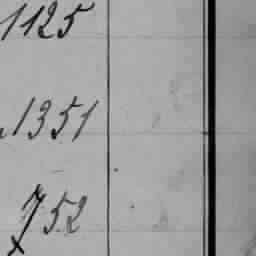 1125
1351
752